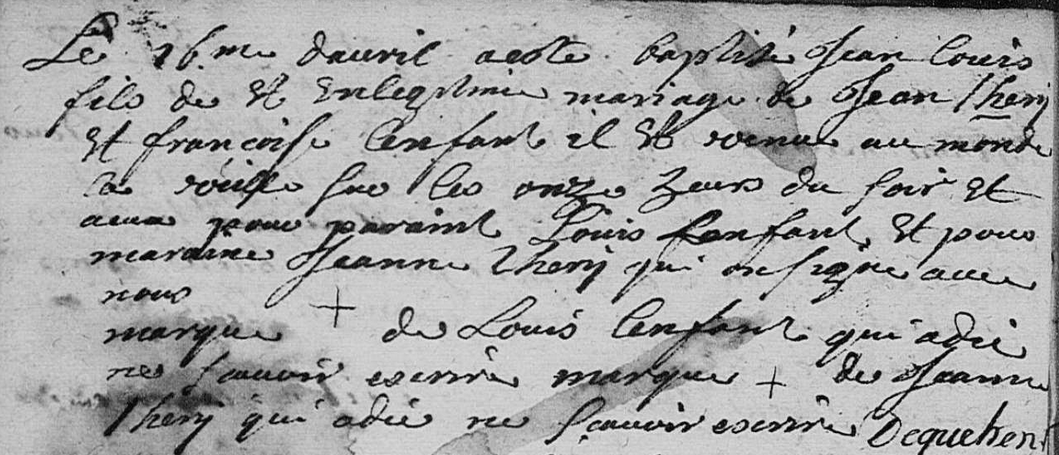 Le 16.me dauril aeste baptisé Jean louis
fils de et En legitime mariage de Jean Therj
et francoise lenfant il et venue au monde
la veille sur les onze heurs du soir et
aeue pour paraint Louis Lenfant et pour
maraine Jeanne Therij qui on signe auec
nous
marque + de Louis lenfant qui adie
ne scauoir escrire marque + de Jeanne
Therij qui adie ne scauoir escrire Dequehent